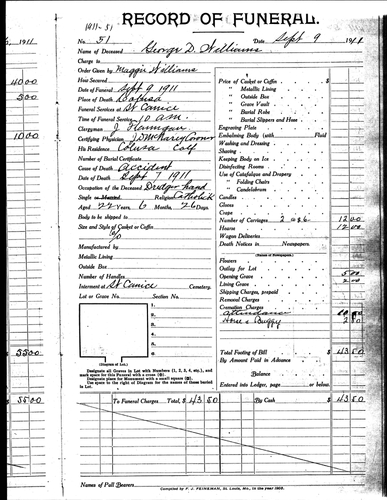 1911-51
RECORD OF FUNERAL.
No. 51 Date Sept 9 1911
Name of Deceased George D. Williams
Charge to
Order Given by Maggie Williams
How Secured
Date of Funeral Sept 9 1911
Place of Death Colusa
Funeral Services at St Canice
Time of Funeral Service 10 a.m.
Clergyman J Flanigan
Certifying Physician
His Residence Colusa Calf
Number of Burial Certificate
Cause of Death Accident
Date of Death Sept 7 1911
Occupation of the Deceased Dredger hand
Single or Married Religion Catholick
Aged 22 Years, 6 Months, 26 Days.
Body to be shipped to
Size and Style of Casket or Coffin
6/0
Manufactured by
Metallic Lining
Outside Box
Number of Handles
Interment at St Canice Cemetery.
Lot or Grave No. Section No.
1.
2.
3.
4.
5.
6.
(Diagram of Lot.)
Designate all Graves in Lot with Numbers (1, 2, 3, 4, etc.), and
mark space for this Funeral with a cross (⊗).
Designate place for Monument with a small square (⊡).
Use space to the right of Diagram for names of those buried
in Lot.
Price of Casket or Coffin
" Metallic Lining
" Outside Box
" Grave Vault
" Burial Robe
" Burial Slippers and Hose
Engraving Plate
Embalming Body (with Fluid
Washing and Dressing
Shaving
Keeping Body on Ice
Disinfecting Rooms
Use of Catafalque and Drapery
" Folding Chairs
" Candelabrum
Candles
Gloves
Crape
Number of Carriages 2 @ 6 12 00
Hearse 12 00
Wagon Deliveries
Death Notices in Newspapers.
(Names of Newspapers.)
Flowers
Outlay for Lot
Opening Grave 5 00
Lining Grave 2 00
Shipping Charges, prepaid
Removal Charges
Cremation Charges
attendance 10 00
Horse & Buggy 2 50
Total Footing of Bill $ 43 50
By Amount Paid in Advance
Balance
Entered into Ledger, page or below.
To Funeral Charges Total, $ 43 50 By Cash $ 43 50
Names of Pall Bearers
Compiled by F. J. FEINEMAN, St. Louis, Mo., in the year 1906.
1911
40 00
3 00
10 00
53 00